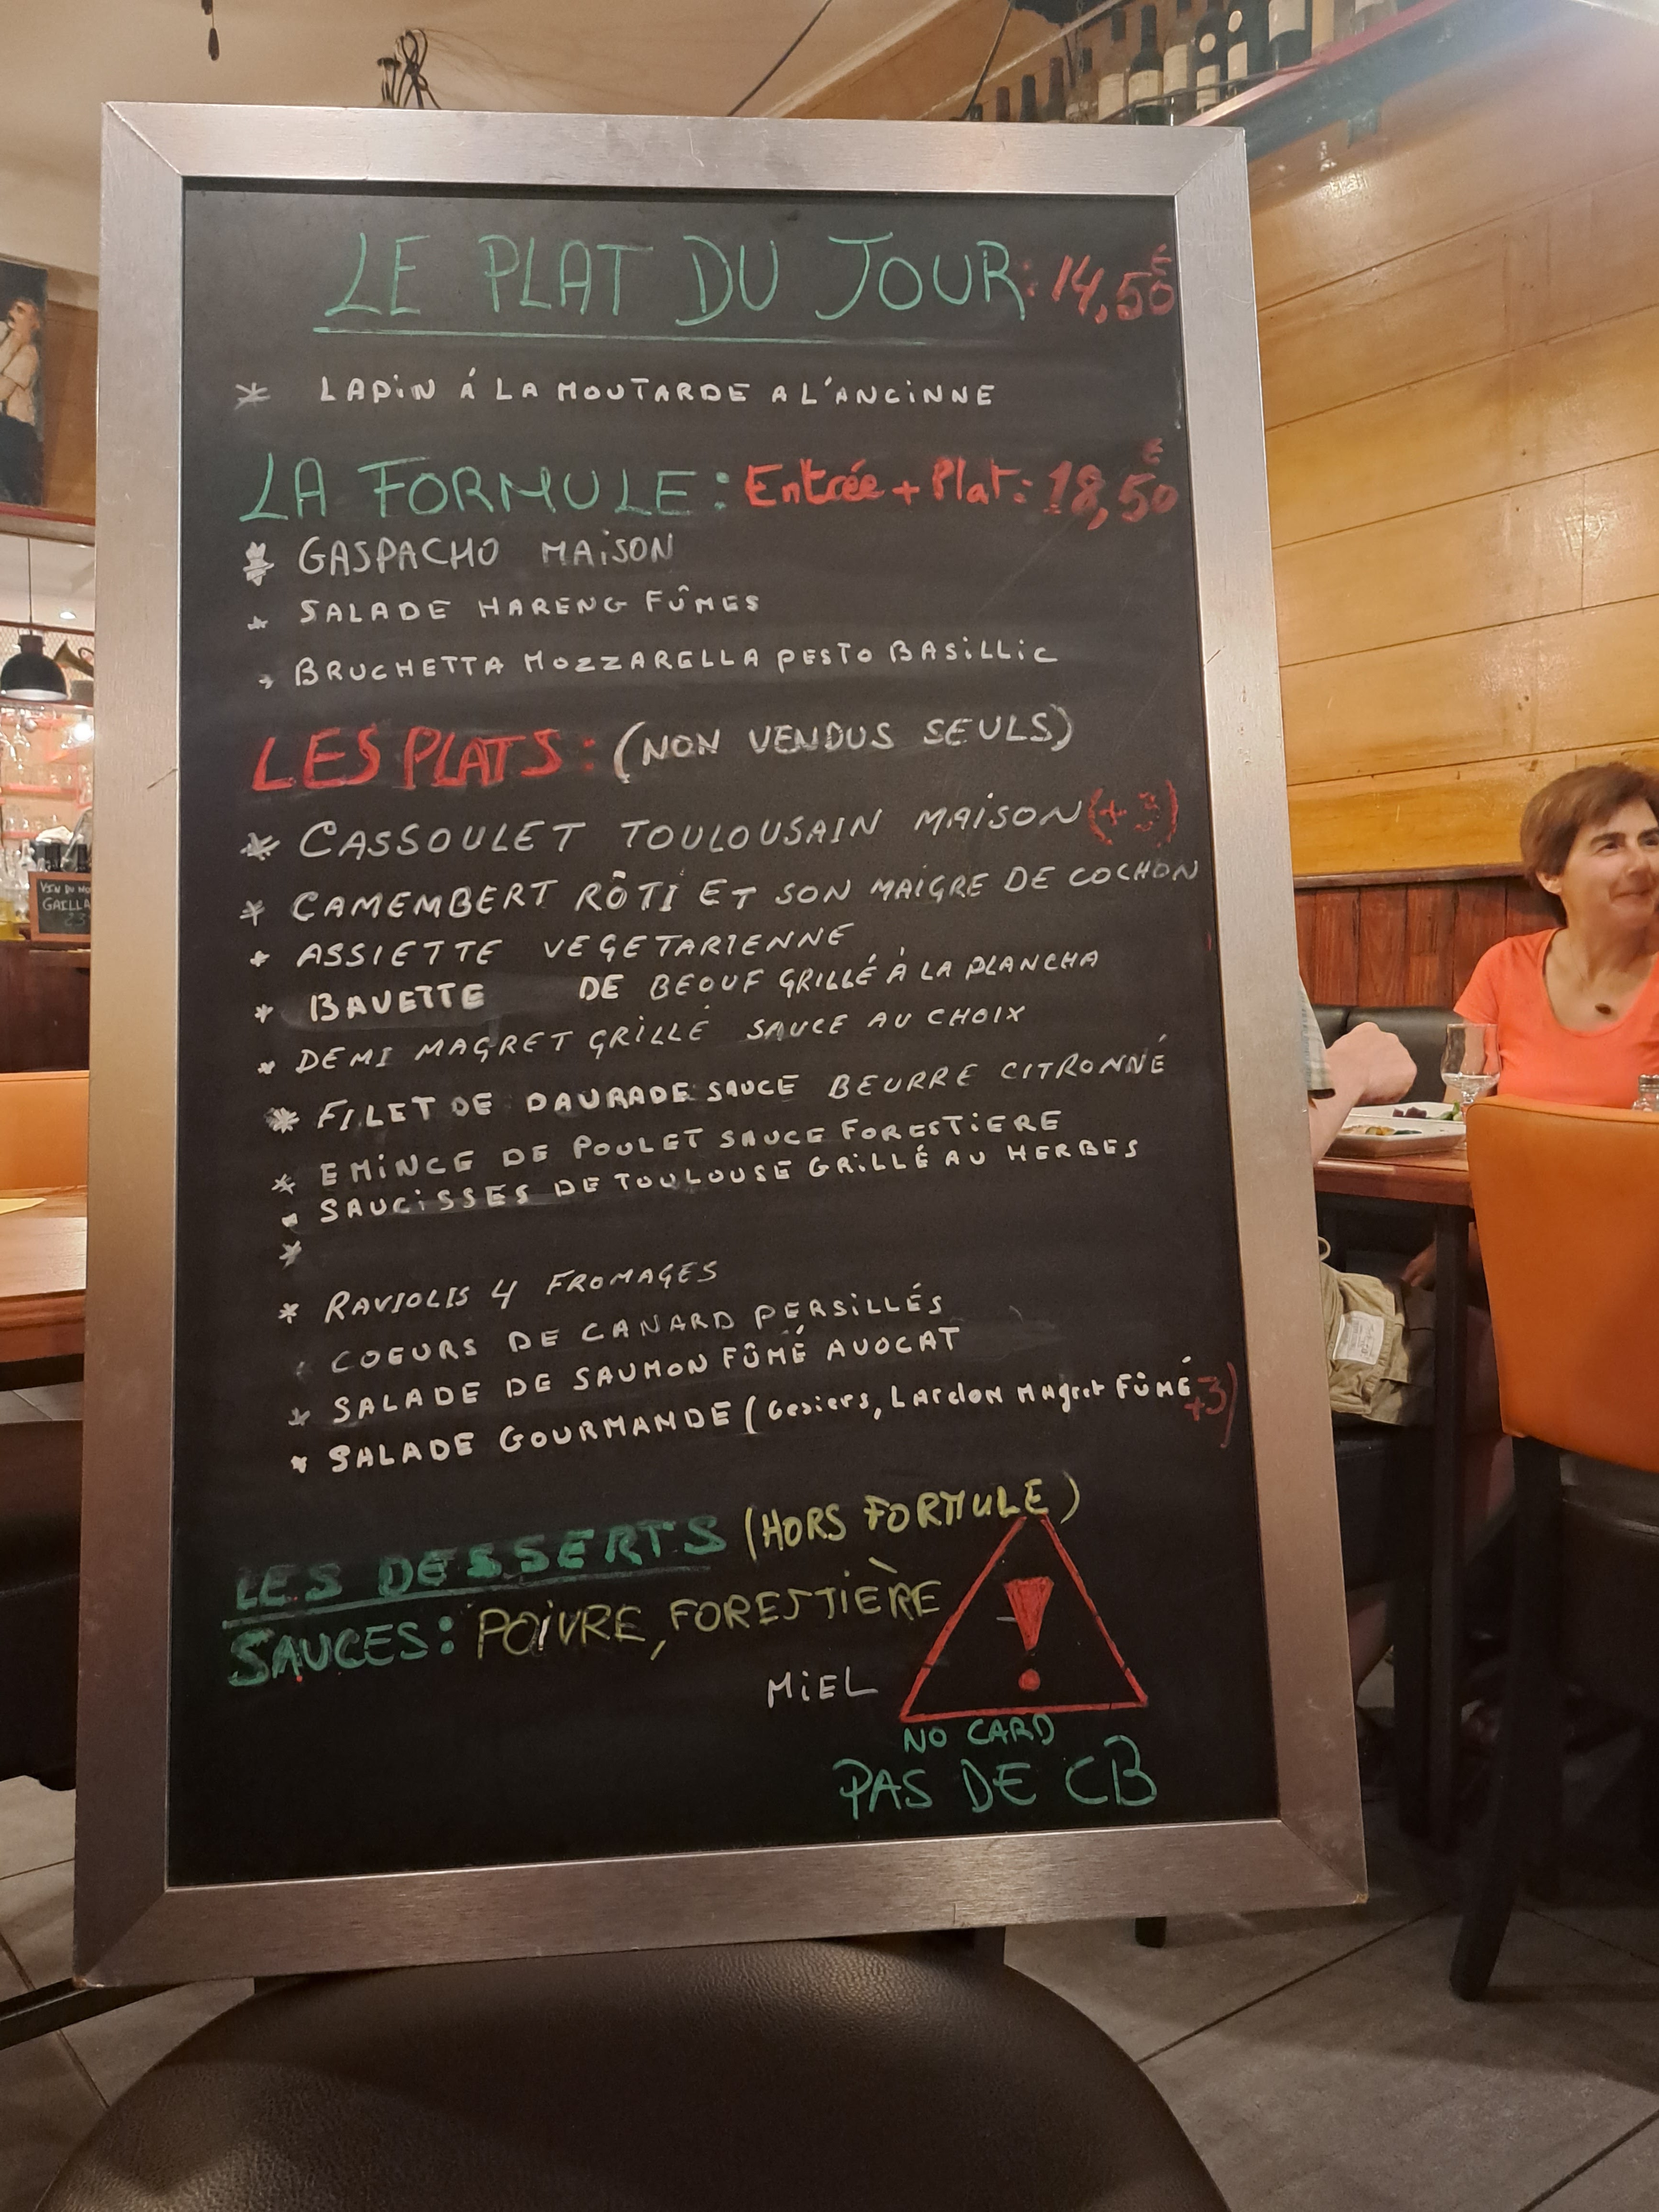 LE PLAT DU JOUR: 14,50€
* LAPIN Á LA MOUTARDE A L'ANCINNE
LA FORMULE: Entrée + Plat: 18,50€
* GASPACHO MAISON
* SALADE HARENG FÛMES
* BRUCHETTA MOZZARELLA PESTO BASILLIC
LES PLATS: (NON VENDUS SEULS)
* CASSOULET TOULOUSAIN MAISON (+3)
* CAMEMBERT RÔTI ET SON MAIGRE DE COCHON
* ASSIETTE VEGETARIENNE
* BAVETTE DE BEOUF GRILLÉ À LA PLANCHA
* DEMI MAGRET GRILLÉ SAUCE AU CHOIX
* FILET DE DAURADE SAUCE BEURRE CITRONNÉ
* EMINCE DE POULET SAUCE FORESTIERE
* SAUCISSES DE TOULOUSE GRILLÉ AU HERBES
*
* RAVIOLIS 4 FROMAGES
COEURS DE CANARD PERSILLÉS
* SALADE DE SAUMON FÛMÉ AVOCAT
* SALADE GOURMANDE (Gesiers, Lardon Magret FÛMÉ +3)
LES DESSERTS (HORS FORMULE)
SAUCES: POIVRE, FORESTIÈRE
MIEL
!
NO CARD
PAS DE CB
VIN DU
GAILLA